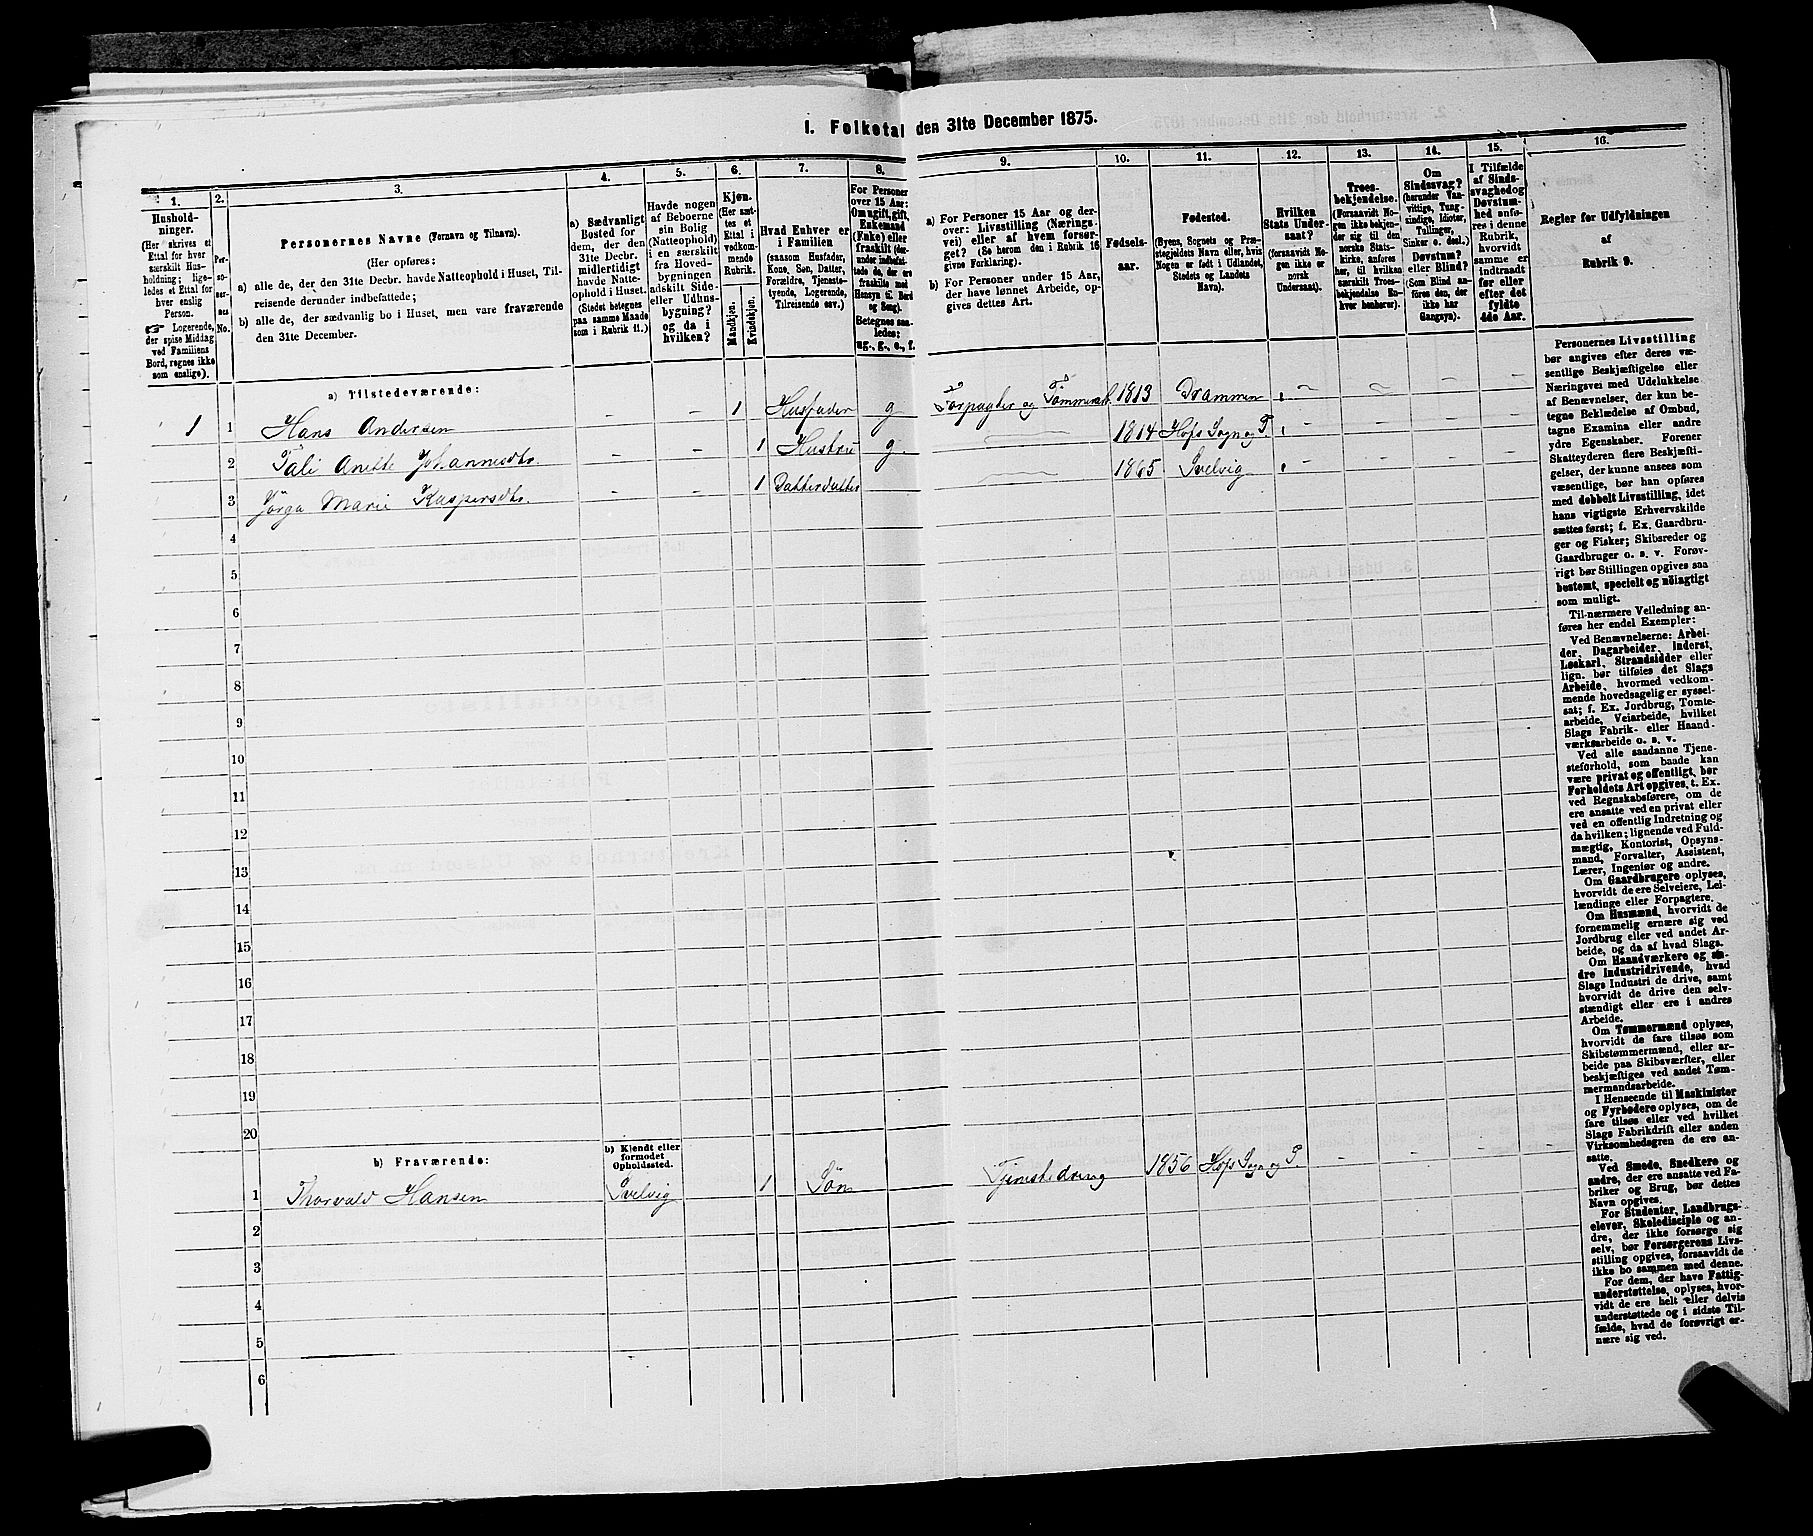 1. Folketal den 31te December 1875.
1.
2.
3.
4.
5.
6.
7.
8.
9.
10.
11.
12.
13.
14.
15.
16.
Hushold-
ninger.
(Her skrives et
Ettal for hver
særskilt Hus-
holdning; lige-
ledes et Ettal for
hver enslig
Person.
☞ Logerende,
der spise Middag
ved Familiens
Bord, regnes ikke
som enslige).
Per-
so-
ner-
nes
No.
Personernes Navne (Fornavn og Tilnavn).
(Her opføres:
a) alle de, der den 31te Decbr. havde Natteophold i Huset, Til-
reisende derunder indbefattede;
b) alle de, der sædvanlig bo i Huset, men vare fraværende
den 31te December.
a) Sædvanligt
Bosted for
dem, der den
31te Decbr.
midlertidigt
havde Natte-
ophold i Huset.
(Stedet betegnes
paa samme Maade
som i Rubrik 11.)
Havde nogen
af Beboerne
sin Bolig
(Natteophold)
i en særskilt
fra Hoved-
bygningen
adskilt Side-
eller Udhus-
bygning?
og da i
hvilken?
Kjøn.
(Her sæt-
tes et
Ettal i
vedkom-
mende
Rubrik.
Mandkjøn.
Kvindekjøn.
Hvad Enhver er
i Familien
(saasom Husfader,
Kone, Søn, Datter,
Forældre, Tjeneste-
tyende, Logerende,
Tilreisende osv.)
For Personer
over 15 Aar:
Om ugift, gift,
Enkemand
(Enke) eller
fraskilt
Betegnes saa-
ledes:
ug., g., e., f.
a) For Personer 15 Aar og der-
over: Livsstilling (Nærings-
vei) eller af hvem forsør-
get? (Se herom den i Rubrik 16
givne Forklaring).
b) For Personer under 15 Aar,
der have lønnet Arbeide, op-
gives dettes Art.
Fødsels-
aar.
Fødested.
(Byens, Sognets og Præ-
stegjeldets Navn eller, hvis
Nogen er født i Udlandet,
Stedets og Landets
Navn).
Hvilken
Stats Under-
saat?
(forsaavidt No-
gen ikke er
norsk
Undersaat).
Troes-
bekjendelse.
(Forsaavidt No-
gen ikke bekjen-
der sig til den
norske Stats-
kirke, anføres
her, til hvilken
særskilt Troes-
bekjendelse En-
hver henhører).
Om
Sindssvag?
(herunder Van-
vittige, Tung-
sindige, Idioter,
Tullinger,
Sinker o. desl.)
Døvstum?
eller Blind?
(Som Blind an-
føres den, der
ikke har
Gangsyn).
I Tilfælde
af Sinds-
svaghed og
Døvstum-
hed anfø-
res i denne
Rubrik,
hvorvidt
samme er
indtraadt
før eller
efter det
fyldte
4de Aar.
Regler for Udfyldningen
af
Rubrik 9.
a) Tilstedeværende:
1 1 Hans Andersen - - 1 Husfader g Forpagter og 1813 Drammen
2 Anette Johannesdtr. - - 1 Hustru g. 1814 Hofs Sogn og P.
3 Marie Kaspersdtr. - - 1 Datterdatter 1865 Svelvig
4
5
6
7
8
9
10
11
12
13
14
15
16
17
18
19
20
b) Fraværende:
b) Kjendt eller
formodet
Opholdssted.
1 Thorvald Hansen Svelvig 1 Søn Tjenestedreng 1856 Hofs Sogn og P. - - - -
2
3
4
5
6
Personernes Livsstilling
bør angives efter deres væ-
sentlige Beskjæftigelse eller
Næringsvei med Udelukkelse
af Benævnelser, der kun be-
tegne Beklædelse af Ombud,
tagne Examina eller andre
ydre Egenskaber. Forener
Skatteyderen flere Beskjæfti-
gelser, der kunne ansees som
væsentlige, bør han opføres
med dobbelt Livsstilling, idet
hans vigtigste Erhvervskilde
sættes først; f. Ex. Gaardbru-
ger og Fisker; Skibsreder og
Gaardbruger o. s. v. Forøv-
rigt bør Stillingen opgives saa
bestemt, specielt og nøiagtigt
som muligt.
Til nærmere Veiledning an-
føres her endel Exempler:
Ved Benævnelserne: Arbei-
der, Dagarbeider, Inderst,
Løskarl, Strandsidder eller
lign. bør tilføies det Slags
Arbeide, hvormed vedkom-
mende hovedsagelig er syssel-
sat; f. Ex. Jordbrug, Tomte-
arbeide, Veiarbeide, hvilket
Slags Fabrik- eller Haand-
værksarbeide o. s. v.
Ved alle saadanne Tjene-
steforhold, som baade kan
være privat og offentligt, bør
Forholdets Art opgives, t. Ex.
ved Regnskabsførere, om de
ere ansatte ved en privat eller
ved en offentlig Indretning og
da hvilken; lignende ved Fuld-
mægtig, Kontorist, Opsyns-
mand, Forvalter, Assistent,
Lærer, Ingeniør og andre.
Om Gaardbrugere oplyses,
hvorvidt de ere Selveiere, Lei-
lændinge eller Forpagtere.
Om Husmænd, hvorvidt de
fornemmelig ernære sig ved
Jordbrug eller ved andet Ar-
beide, og da af hvad Slags.
Om Haandværkere og an-
dre Industridrivende, hvad
Slags Industri de drive, samt
hvorvidt de drive den selv-
stændigt eller ere i andres
Arbeide.
Om Tømmermænd oplyses,
hvorvidt de fare tilsøs som
Skibstømmermænd, eller ar-
beide paa Skibsværfter, eller
beskjæftiges ved andet Tøm-
mermandsarbeide.
I Henseende til Maskinister
og Fyrbødere oplyses, om de
fare tilsøs eller ved hvilket
Slags Fabrikdrift eller anden
Virksomhedsgren de ere an-
satte.
Ved Smede, Snedkere og
andre, der ere ansatte ved Fa-
briker og Brug, bør dettes
Navn opgives.
For Studenter, Landbrugs-
elever, Skoledisciple og an-
dre, der ikke forsørge sig
selv, bør Forsørgerens Livs-
stilling opgives, forsaavidt de
ikke bo sammen med denne.
For dem, der have Fattig-
understøttelse, oplyses, hvor-
vidt de ere helt eller delvis
understøttede og i sidste Til-
fælde, hvad de forøvrigt er-
nære sig ved.